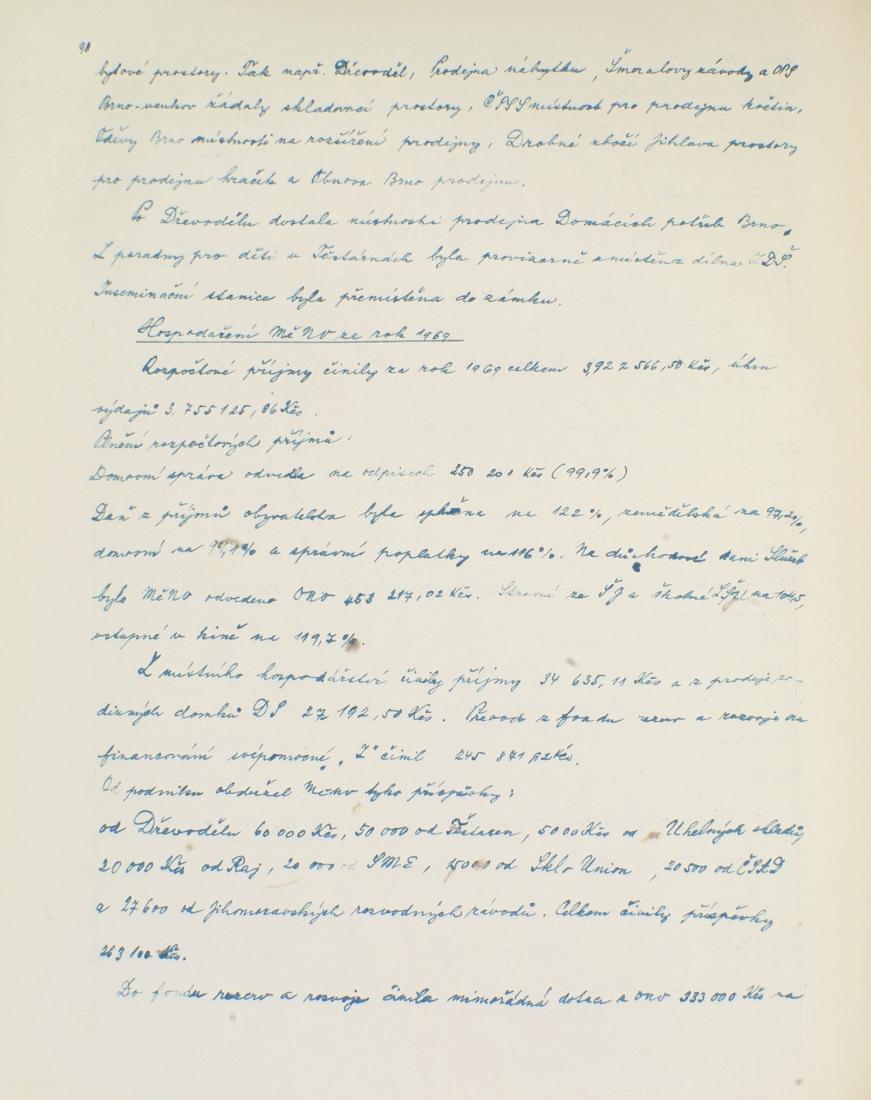 98
bytové prostory. Tak např. Dřevoděl, Prodejna nábytku, Šmeralovy závody a OPS
Brno-venkov žádaly skladovací prostory, ČPSS místnost pro prodejnu květin,
Oděvy Brno místnosti na rozšíření prodejny, Drobné zboží Jihlava prostory
pro prodejnu hraček a Obnova Brno prodejnu.
Po Dřevodělu dostala místnosti prodejna Domácích potřeb Brno.
Z poradny pro děti v Těstárnách byla provizorně umístěna dílna ZDŠ.
Inseminační stanice byla přemístěna do zámku.
Hospodaření MěNV za rok 1969
Rozpočtové příjmy činily za rok 1969 celkem 3,922 566,50 Kčs, úhrn
výdajů 3,755125,86 Kčs.
Plnění rozpočtových příjmů:
Domovní správa odvedla na odpisech 250 200 Kčs (99,9%)
Daň z příjmů obyvatelstva byla splněna na 122%, zemědělská na 97,2%,
domovní na % a správní poplatky na 116%. Na důchodové dani Služeb
bylo MěNV odvedeno ONV 453 217,02 Kčs. Stravné ze ŠJ a školné LŠU na 104,5,
vstupné v kině na 119,7%.
Z místního hospodářství činily příjmy 34 635,11 Kčs a z prodeje ro-
dinných domků DS 27 192,50 Kčs. Převod z fondu rezerv a rozvoje na
financování svépomocné "Z" činil 245 871,92 Kčs.
Od podniků obdržel MěNV tyto příspěvky:
od Dřevodělu 60 000 Kčs, 50 000 od Těstáren, 5000 Kčs od Uhelných skladů,
20 000 Kčs od Raj, 20 000 od SME, od Sklo Union, 20 500 od ČSAD
a 27600 od Jihomoravských rozvodných závodů. Celkem činily příspěvky
263 100 Kčs.
Do fondu rezerv a rozvoje činila mimořádná dotace z ONV 333 000 Kčs na